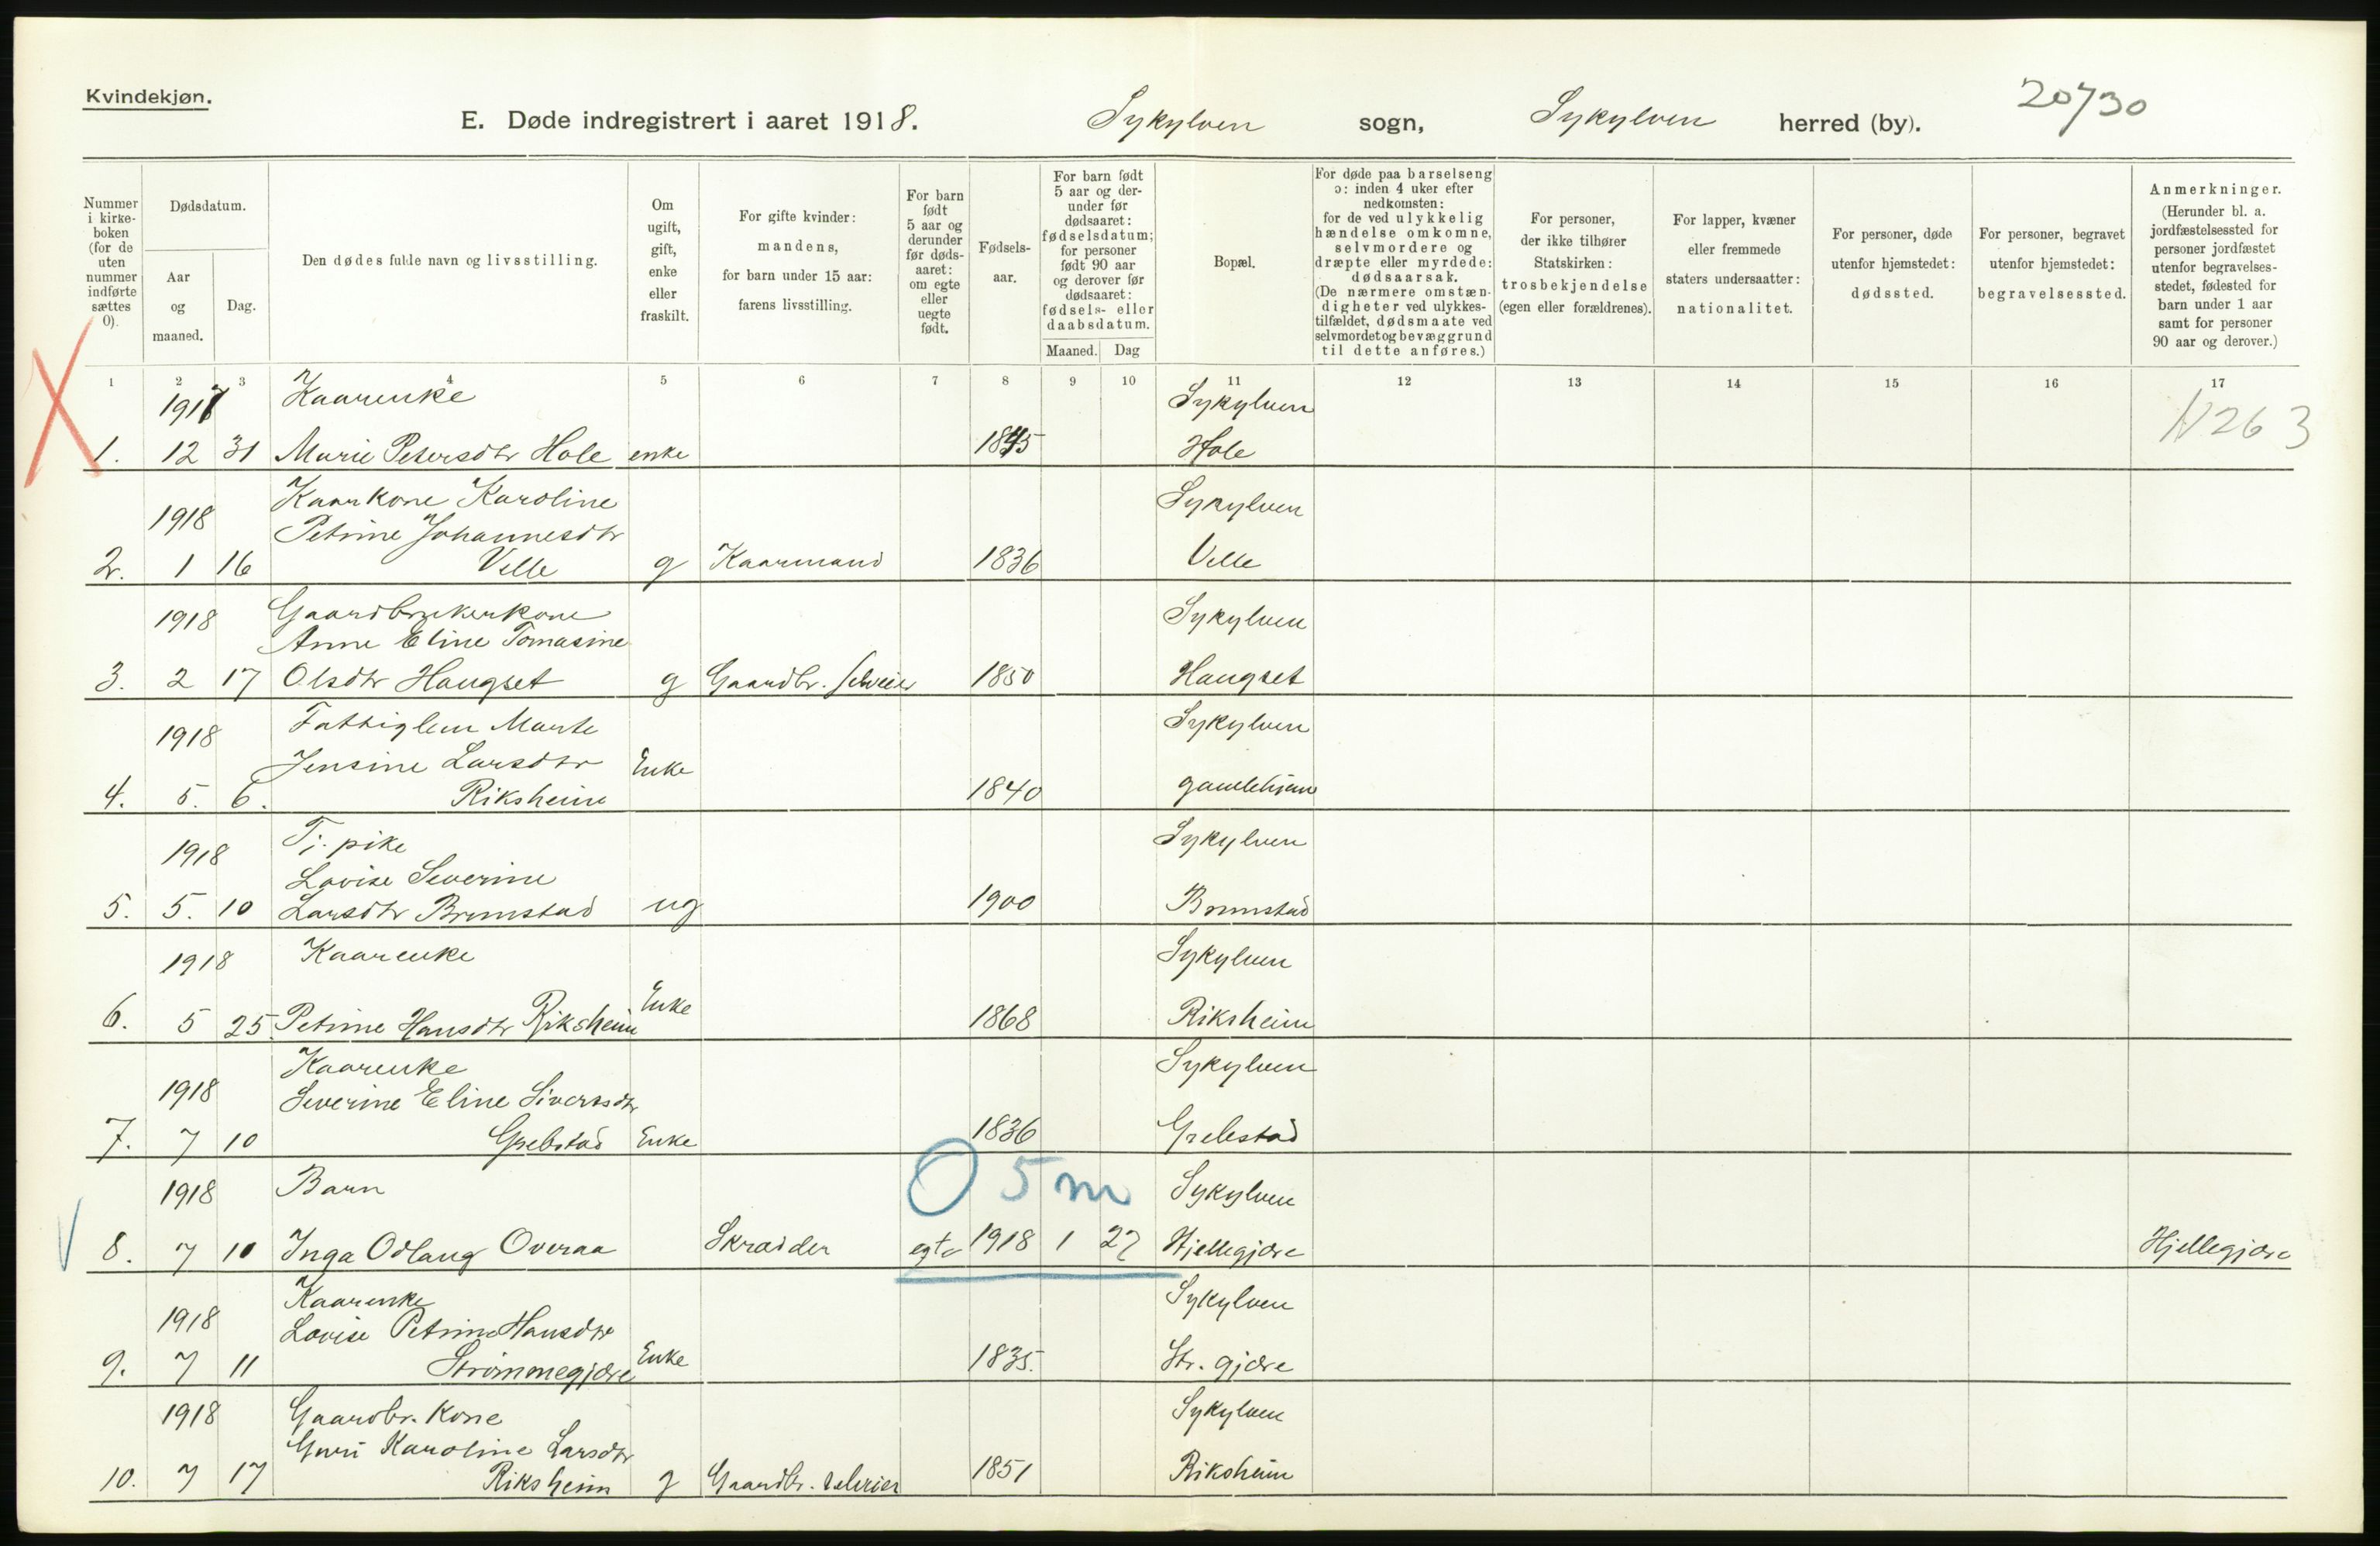 Kvindekjøn.
E. Døde indregistrert i aaret 1918. Sykylven sogn, Sykylven herred (by). 20730
Nummer i kirkeboken (for de uten nummer indførte sættes 0).
Dødsdatum.
Aar og maaned.
Dag.
Den dødes fulde navn og livsstilling.
Om ugift, gift, enke eller fraskilt.
For gifte kvinder: mandens, for barn under 15 aar: farens livsstilling.
For barn født 5 aar og derunder før dødsaaret: om egte eller uegte født.
Fødselsaar.
For barn født 5 aar og derunder før dødsaaret: fødselsdatum; for personer født 90 aar og derover før dødsaaret: fødsels- eller daabsdatum.
Maaned. Dag
Bopæl.
For døde paa barselseng ɔ: inden 4 uker efter nedkomsten: for de ved ulykkelig hændelse omkomne, selvmordere og dræpte eller myrdede: dødsaarsak. (De nærmere omstændigheter ved ulykkestilfældet, dødsmaate ved selvmordet og bevæggrund til dette anføres.)
For personer, der ikke tilhører Statskirken: trosbekjendelse (egen eller forældrenes).
For lapper, kvæner eller fremmede staters undersaatter: nationalitet.
For personer, døde utenfor hjemstedet: dødssted.
For personer, begravet utenfor hjemstedet: begravelsessted.
Anmerkninger. (Herunder bl. a. jordfæstelsessted for personer jordfæstet utenfor begravelsesstedet, fødested for barn under 1 aar samt for personer 90 aar og derover.)
1 2 3 4 5 6 7 8 9 10 11 12 13 14 15 16 17
1917 Kaarenke Sykylven
1. 12 31 Marie Petersdtr Hole enke 1845 Hole N263
1918 Kaarkone Karoline Sykylven
Petrine Johannesdtr
2. 1 16 Velle g Kaarmand 1836 Velle
1918 Gaardbrukerkone Sykylven
Anne Eline Tomasine
3. 2 17 Olsdtr Haugset g Gaardbr. selveier 1850 Haugset
1918 Fattiglem Marte Sykylven
Jensine Larsdtr Enke
4. 5. 6. Riksheim 1840 gamlehjem
1918 Tj. pike Sykylven
Lovise Severine
5. 5. 10 Larsdtr Brunstad ug 1900 Brunstad
1918 Kaarenke Sykylven
6. 5 25. Petrine Hansdtr Riksheim Enke 1868 Riksheim
Kaarenke Sykylven
1918 Severine Eline Sivertsdtr
7. 7 10 Grebstad Enke 1836 Grebstad
O 5 m
1918 Barn Sykylven
8. 7 10 Inga Odlaug Overaa Skrædder egte 1918 1 27 Hjellegjære Hjellegjære
Kaarenke Sykylven
1918 Lovise Petrine Hansdtr
9. 7 11 Strømmegjære Enke 1835. Str. gjære
1918 Gaardbr. Kone Sykylven
Guri Karoline Larsdtr
10. 7 17 Riksheim g Gaardbr. selveier 1851 Riksheim